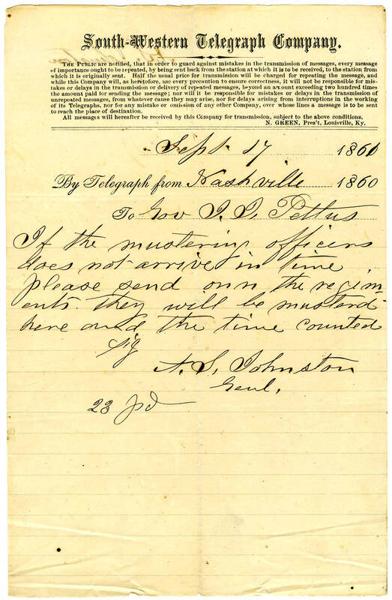 South-Western Telegraph Company.
THE PUBLIC are notified, that in order to guard against mistakes in the transmission of messages, every message
of importance ought to be repeated, by being sent back from the station at which it is to be received, to the station from
which it is originally sent. Half the usual price for transmission will be charged for repeating the message, and
while this Company will, as heretofore, use every precaution to ensure correctness, it will not be responsible for mis-
takes or delays in the transmission or delivery of repeated messages, beyond an account exceeding two hundred times
the amount paid for sending the message; nor will it be responsible for mistakes or delays in the transmission of
unrepeated messages, from whatever cause they may arise, nor for delays arising from interruptions in the working
of its Telegraphs, nor for any mistake or omission of any other Company, over whose lines a message is to be sent
to reach the place of destination.
All messages will hereafter be received by this Company for transmission, subject to the above conditions.
N. GREEN, Pres't, Louisville, Ky.
Sept 17 1861
By Telegraph from Nashville 1860
To Gov J. J. Pettus
If the mustering officers
does not arrive in time,
please send onn the regim
ents they will be musterd
here and the time counted
Sig
A. S. Johnston
Genl.
23 pd